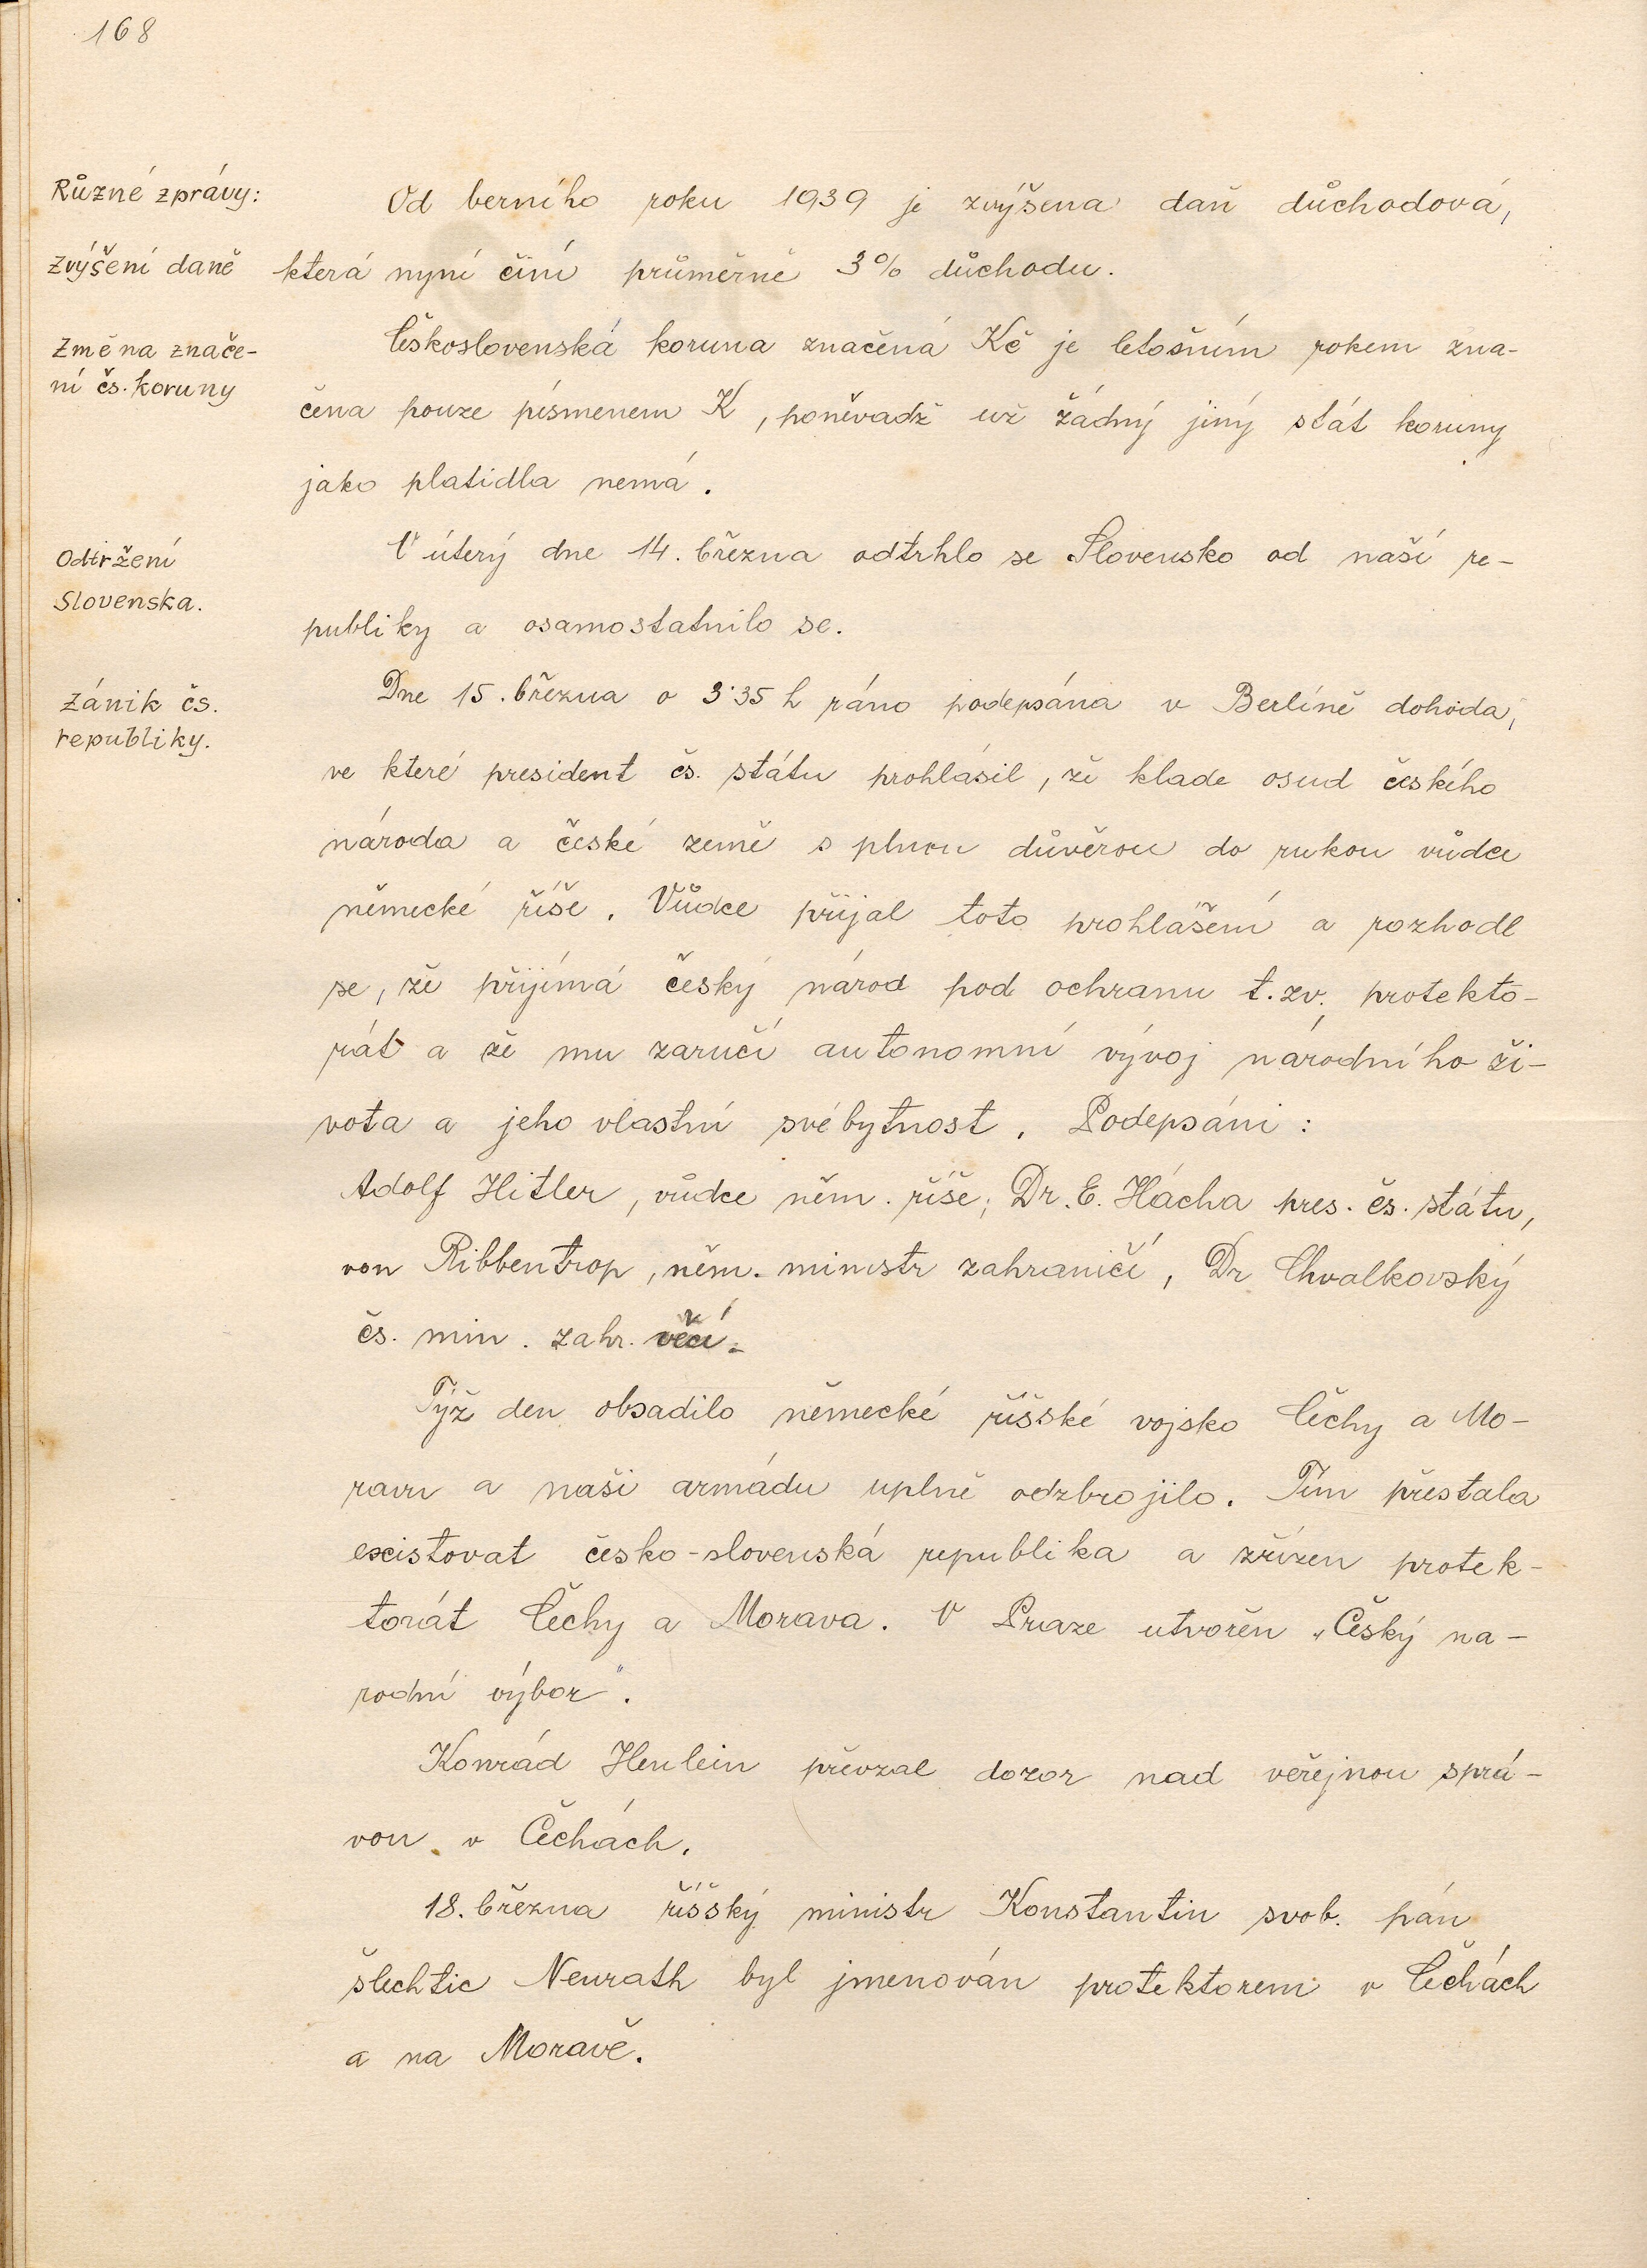 168
Různé zprávy:
Od berního roku 1939 je zvýšena daň důchodová,
Zvýšení daně
která nyní činí průměrně 3% důchodu.
Změna znače-
ní čs. koruny
Československá koruna značená Kč je letošním rokem zna-
čena pouze písmenem K, poněvadž už žádný jiný stát koruny
jako platidla nemá.
Odtržení
Slovenska.
V úterý dne 14. března odtrhlo se Slovensko od naší re-
publiky a osamostatnilo se.
Zánik čs.
republiky.
Dne 15. března o 3·35 h ráno podepsána v Berlíně dohoda,
ve které president čs. státu prohlásil, že klade osud českého
národa a české země s plnou důvěrou do rukou vůdce
německé říše. Vůdce přijal toto prohlášení a rozhodl
se, že přijímá český národ pod ochranu t. zv. protekto-
rát a že mu zaručí autonomní vývoj národního ži-
vota a jeho vlastní svébytnost. Podepsáni:
Adolf Hitler, vůdce něm. říše; Dr. E. Hácha pres. čs. státu,
von Ribbentrop, něm. ministr zahraničí, Dr Chvalkovský
čs. min. zahr. věcí.
Týž den obsadilo německé říšské vojsko Čechy a Mo-
ravu a naši armádu uplně odzbrojilo. Tím přestala
existovat česko-slovenská republika a zřízen protek-
torát Čechy a Morava. V Praze utvořen „Český ná-
rodní výbor".
Konrád Henlein převzal dozor nad veřejnou sprá-
vou v Čechách.
18. března říšský ministr Konstantin svob. pán
šlechtic Neurath byl jmenován protektorem v Čechách
a na Moravě.